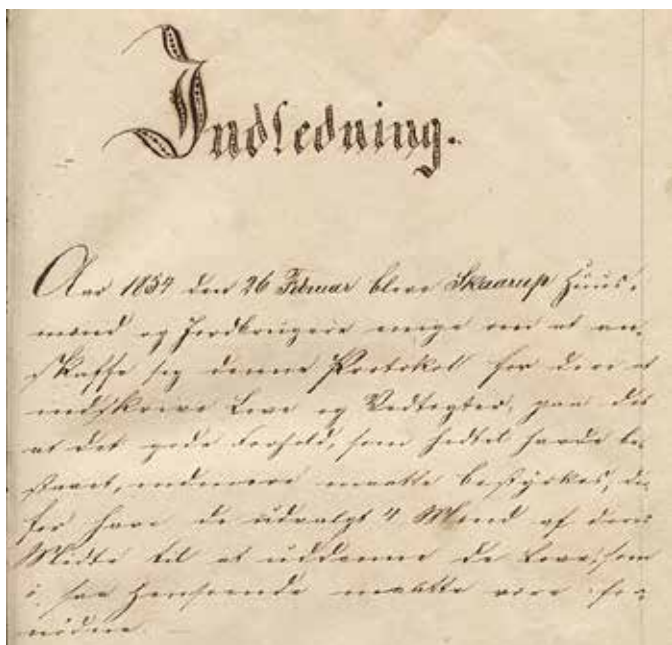 Indledning.
Aar 1854 den 26 Februar bleve Skaarup Huus-
mænd og Jordbrugere enige om at an-
skaffe sig denne Protokol for deri at
nedskrive Love og Vedtegter, paa det
at det gode Forhold, som hidtil havde be-
staaet, endmere maatte bestyrkes, der-
for have de udvalgt 4 Mænd af deres
Midte til at uddanne de Love, som
i saa Henseende maatte være for-
nødne.